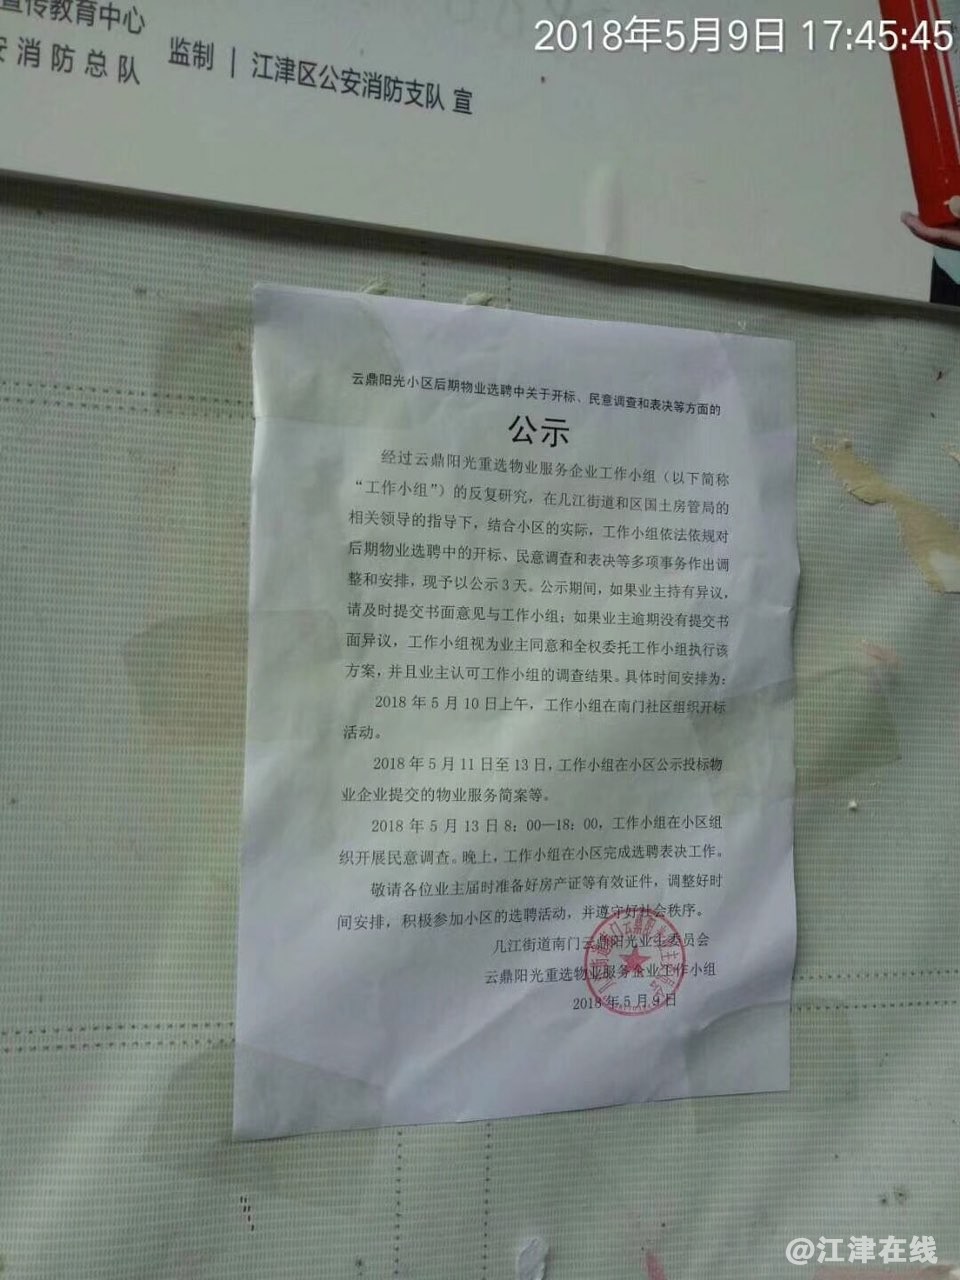 宣传教育中心
安消防总队
监制 | 江津区公安消防支队 宣
2018年5月9日 17:45:45
云鼎阳光小区后期物业选聘中关于开标、民意调查和表决等方面的
公示
经过云鼎阳光重选物业服务企业工作小组（以下简称
“工作小组”）的反复研究，在几江街道和区国土房管局的
相关领导的指导下，结合小区的实际，工作小组依法依规对
后期物业选聘中的开标、民意调查和表决等多项事务作出调
整和安排，现予以公示3天。公示期间，如果业主持有异议，
请及时提交书面意见与工作小组；如果业主逾期没有提交书
面异议，工作小组视为业主同意和全权委托工作小组执行该
方案，并且业主认可工作小组的调查结果。具体时间安排为：
2018年5月10日上午，工作小组在南门社区组织开标
活动。
2018年5月11日至13日，工作小组在小区公示投标物
业企业提交的物业服务简案等。
2018年5月13日8：00—18：00，工作小组在小区组
织开展民意调查。晚上，工作小组在小区完成选聘表决工作。
敬请各位业主届时准备好房产证等有效证件，调整好时
间安排，积极参加小区的选聘活动，并遵守好社会秩序。
几江街道南门云鼎阳光业主委员会
云鼎阳光重选物业服务企业工作小组
2018年5月9日
@江津在线